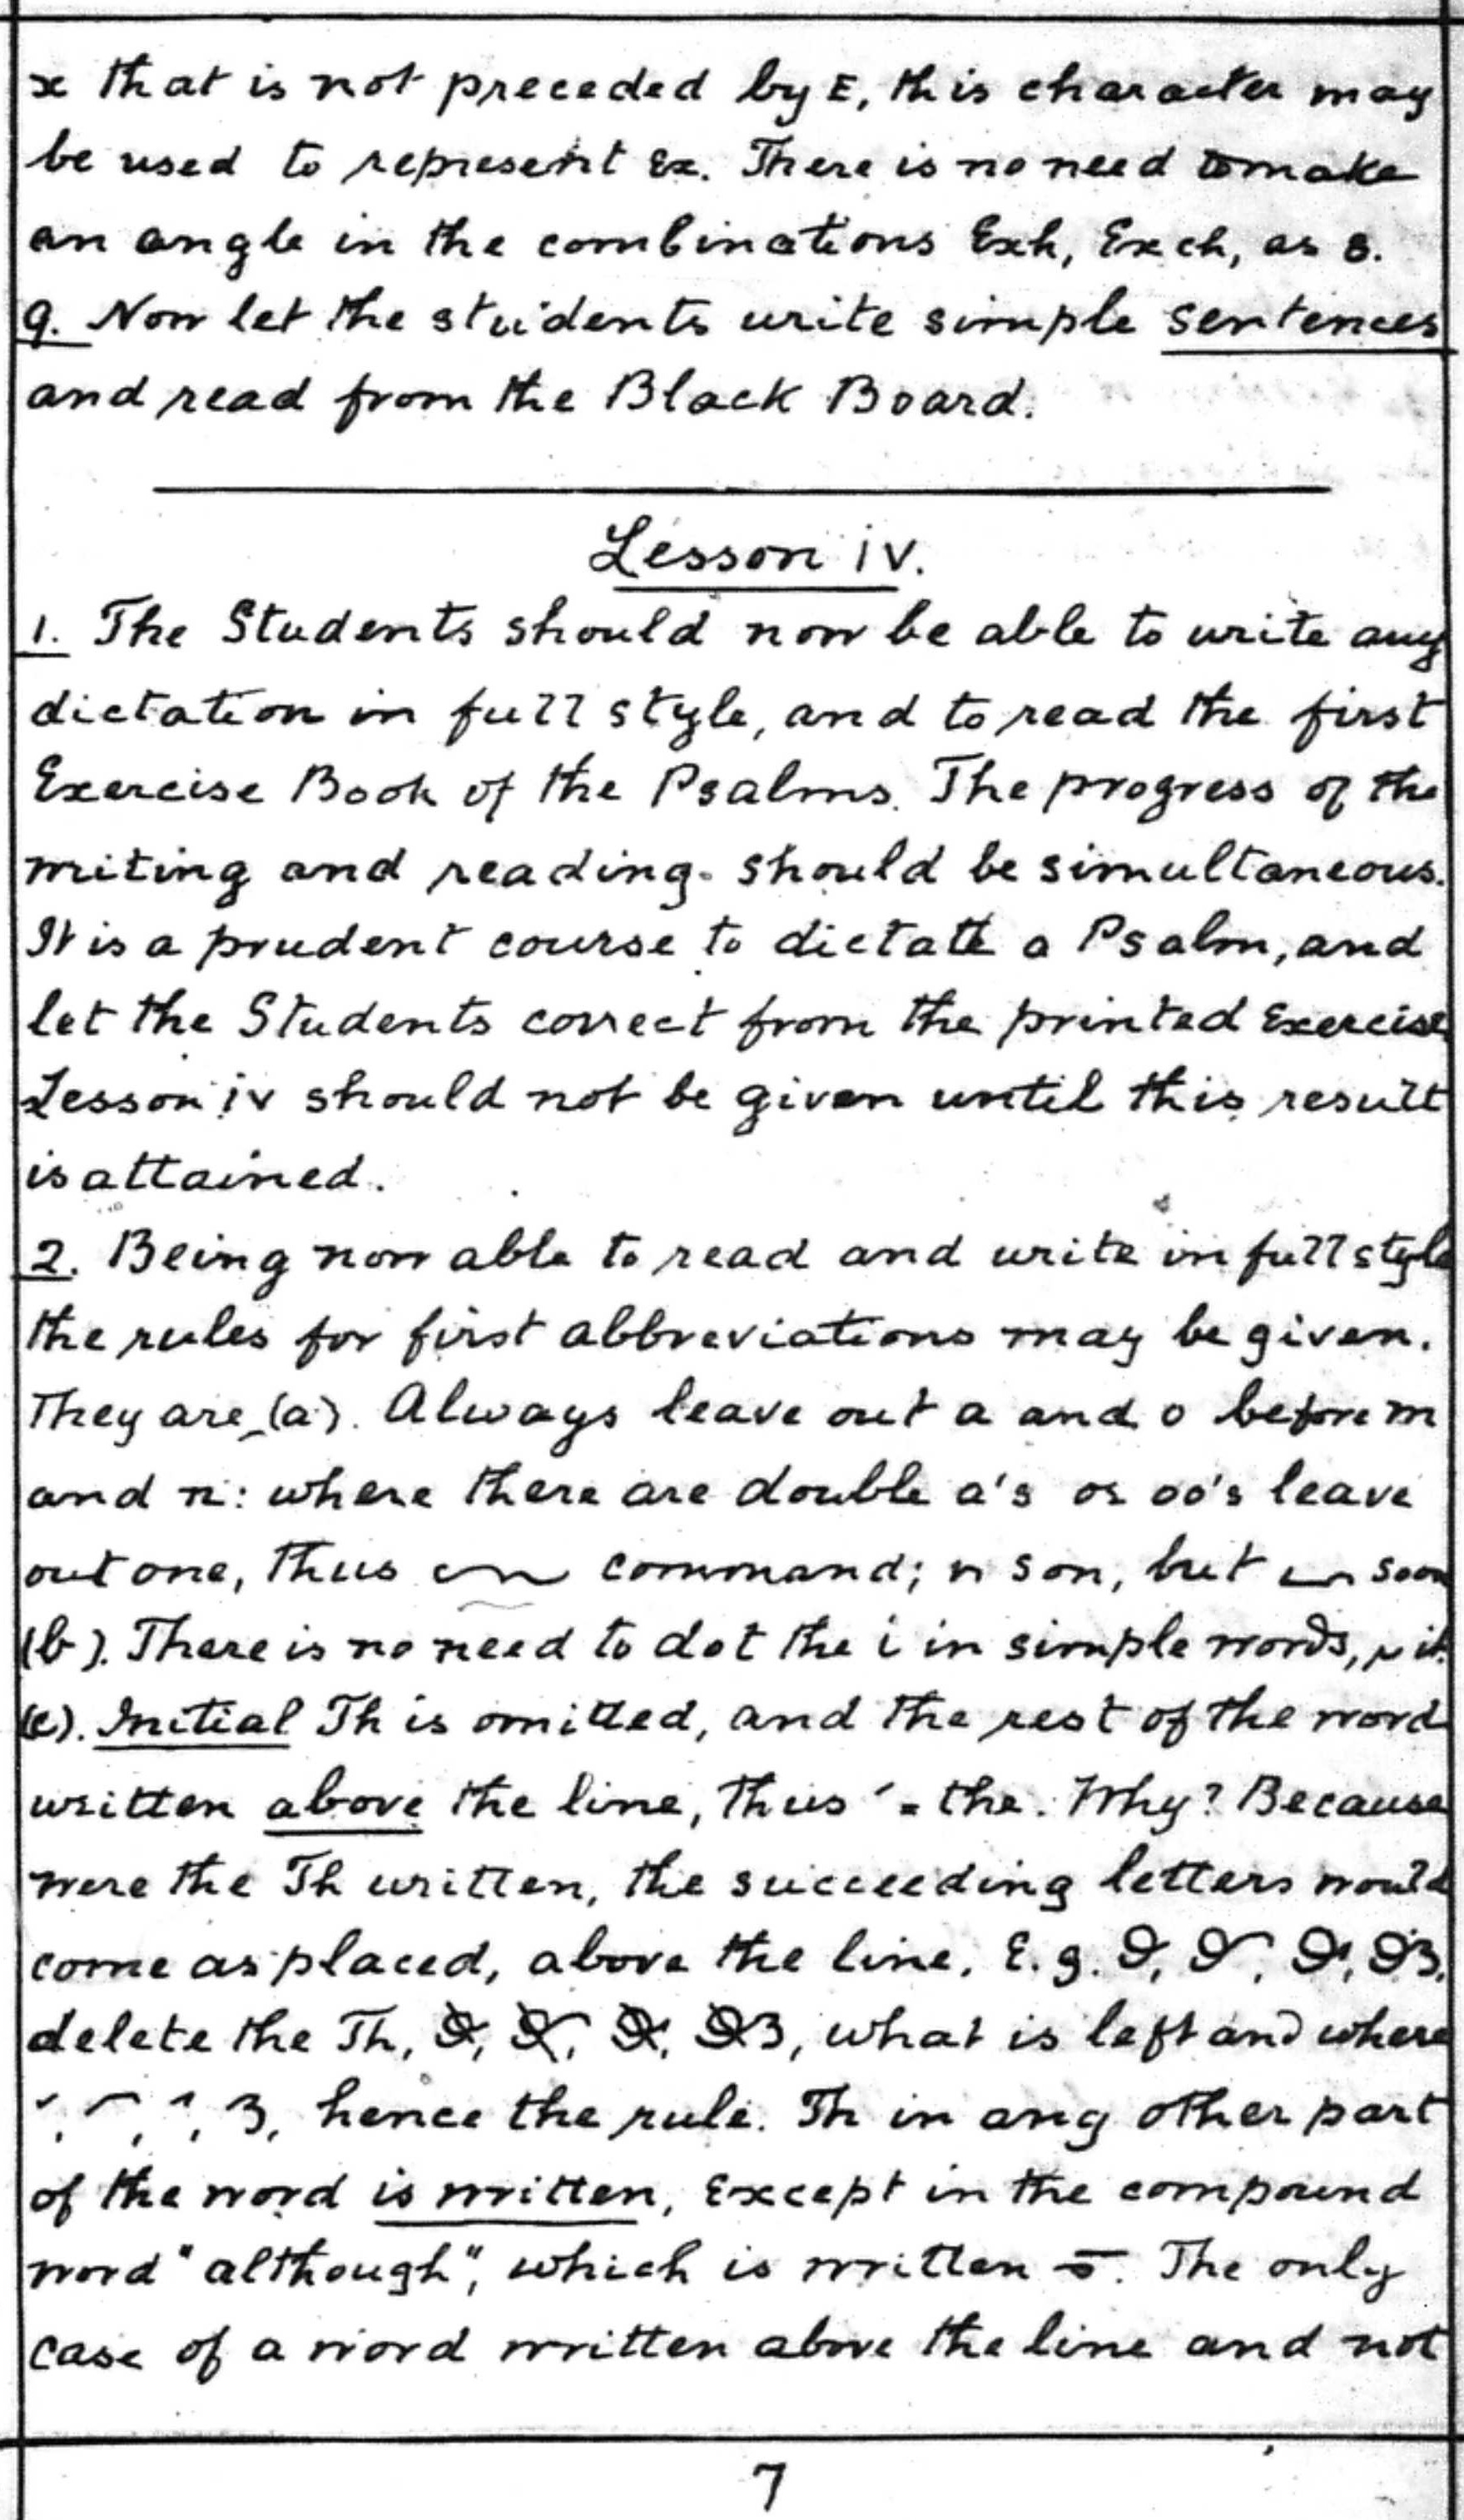 x that is not preceded by E, this character may
be used to represent Ex. There is no need to make
an angle in the combinations Exh, Exch, as 8.
9. Now let the students write simple sentences
and read from the Black Board.
Lesson iv.
1. The Students should now be able to write any
dictation in full style, and to read the first
Exercise Book of the Psalms. The progress of the
writing and reading should be simultaneous.
It is a prudent course to dictate a Psalm, and
let the Students correct from the printed Exercise
Lesson iv should not be given until this result
is attained.
2. Being now able to read and write in full style
the rules for first abbreviations may be given.
They are, (a). Always leave out a and o before m
and n: where there are double a's or oo's leave
out one, thus command; son, but soon
(b). There is no need to dot the i in simple words, it.
(c). Initial Th is omitted, and the rest of the word
written above the line, thus ´ = the. Why? Because
were the Th written, the succeeding letters would
come as placed, above the line. E.g.
delete the Th, what is left and where
hence the rule. Th in any other part
of the word is written, Except in the compound
word "although", which is written. The only
case of a word written above the line and not
7